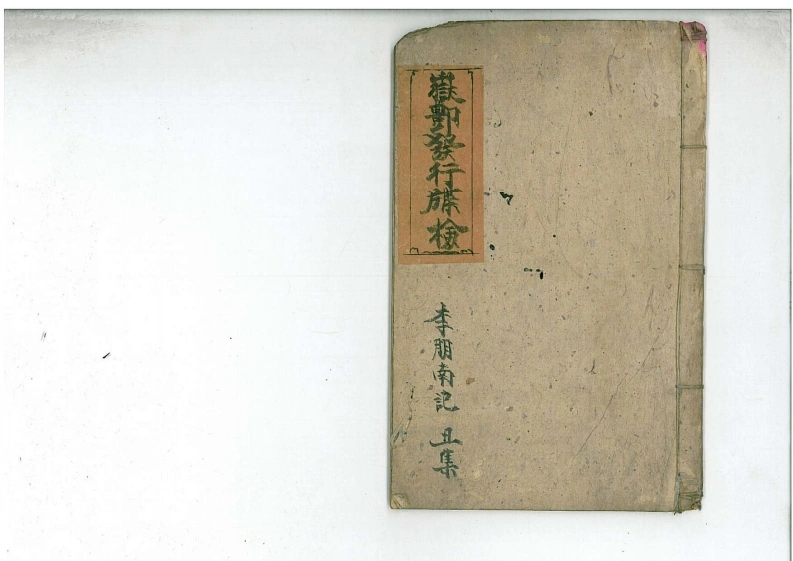 嶽酆發行牒檢
李朋南記 丑集